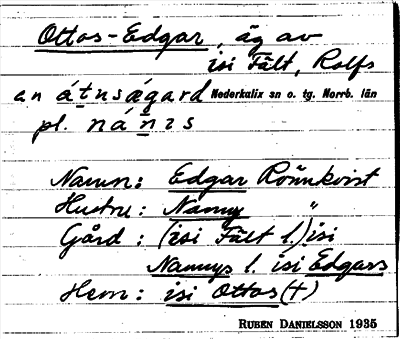 Ottos-Edgar, äg av
isi Fält, Rolfs
an átnsägard Nederkalix sn o. tg. Norrb. län
pl. nánis
Namn: Edgar Rönnkvist
Hustru: Nanny "
Gård: (isi Fält l.) isi
Nannys l. isi Edgars
Hem: isi Ottos (+)
RUBEN DANIELSSON 1935